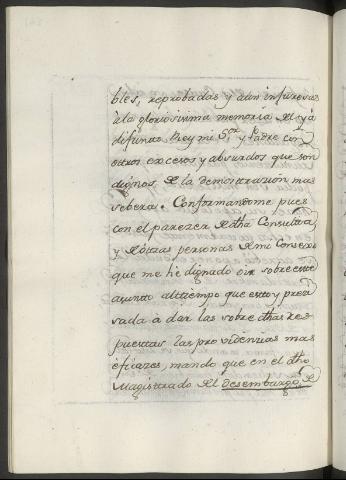 bles, reprobadas y aun injuriosas
à la gloriosissima memoria del ya
difunto Rey mi S.or y Padre con
otros excesos y absurdos que son
dignos de la demostrazion mas
sebera. Conformandome pues
con el parezer de dha Consulta
y de otras personas de mi Consexo
que me hè dignado oir sobre este
asunto al tiempo que estoy preci
sada à dar las sobre dhas res
puestas las providenzias mas
eficazes, mando que en el dho
Magistrado del Desembargo de